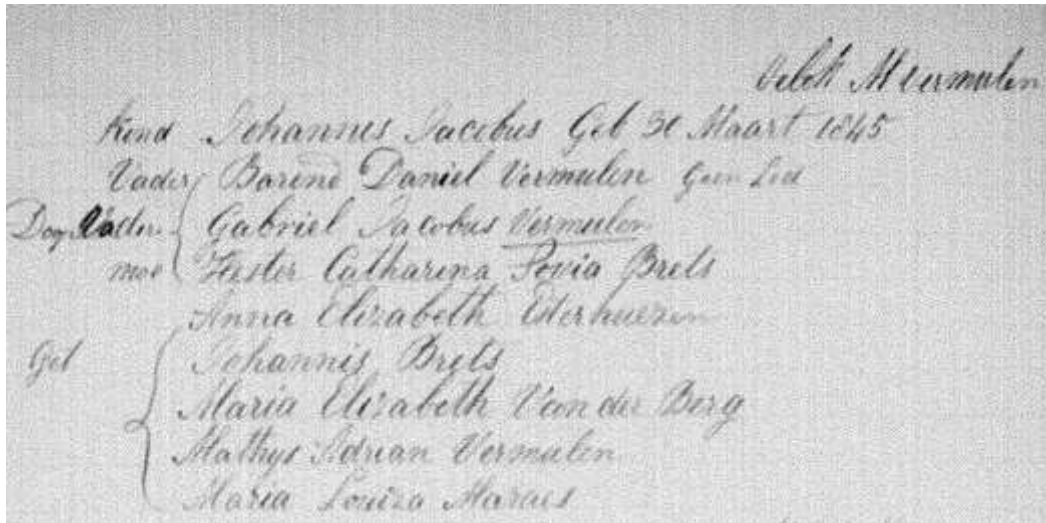 M Vermulen
Kind Johannes Jacobus Geb 30 Maart 1845
Vader Barend Daniel Vermulen Geen Lid
Doop Vader Gabriel Jacobus Vermeulen
moe Hester Catharina Sovia Brets
Anna Elizabeth Esterhuezen
Get Johannis Brets
Maria Elizabeth Van der Berg
Mathys Adrian Vermulen
Maria Louiza Maraes